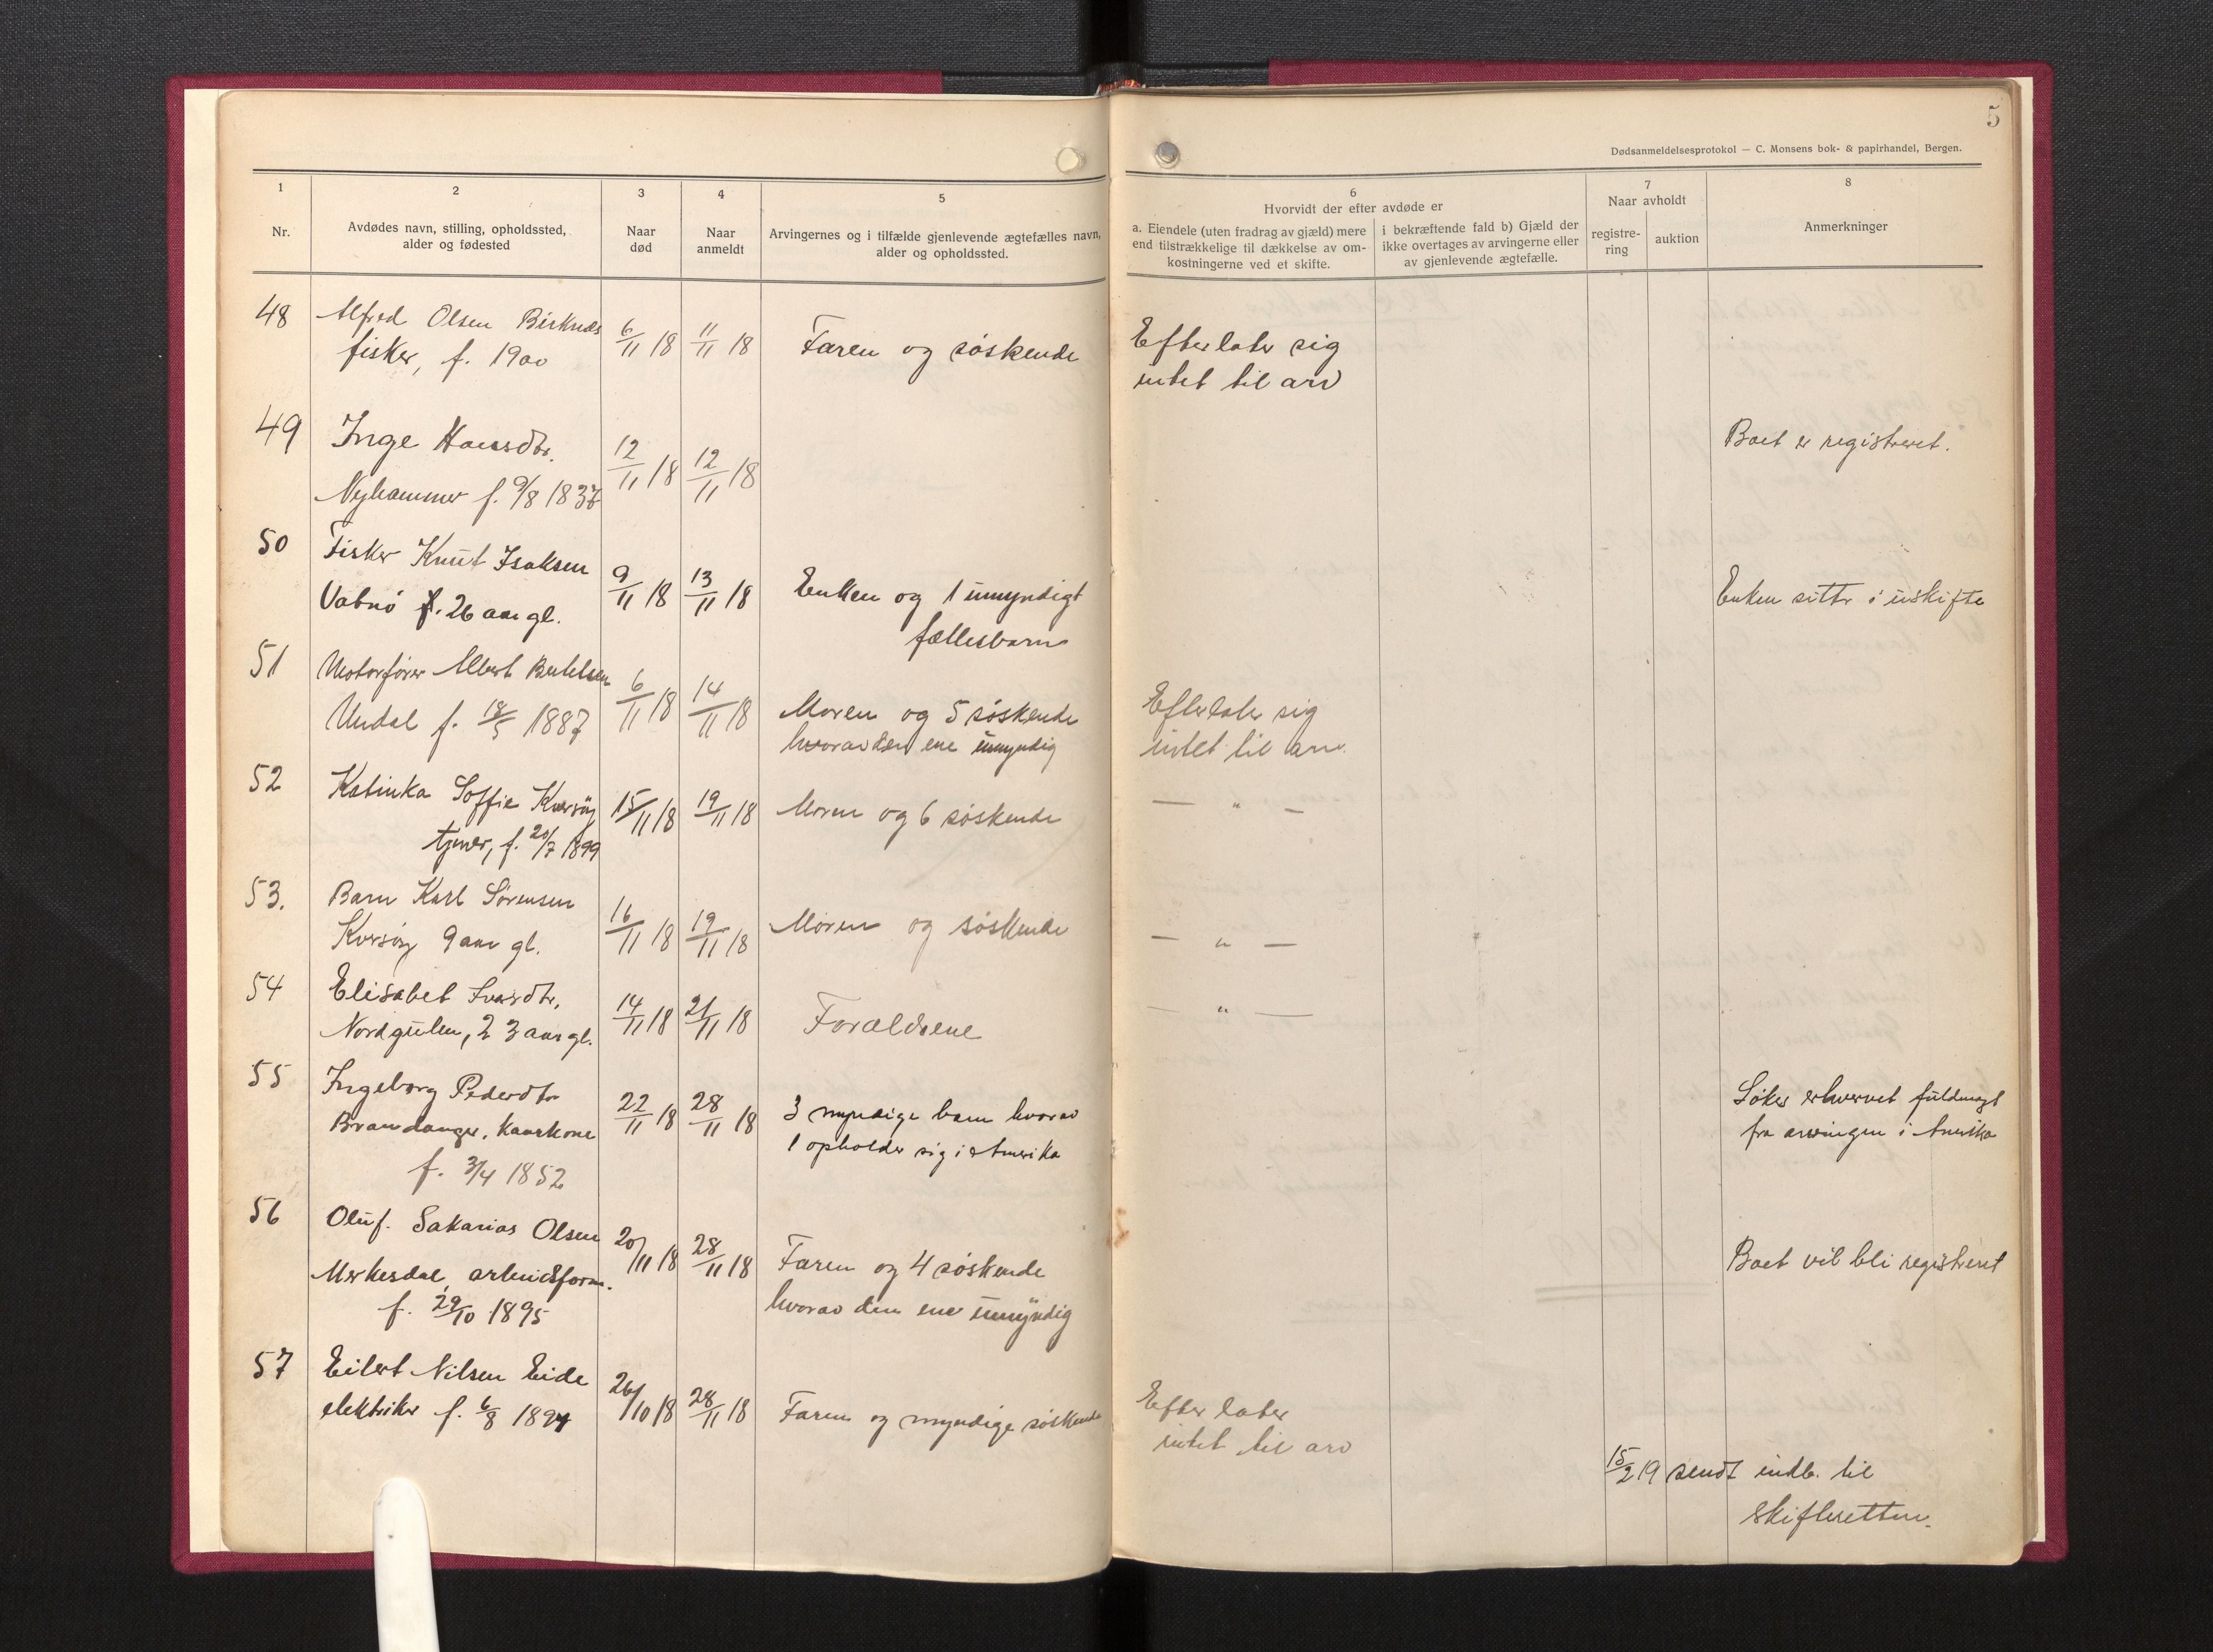 5
Dødsanmeldelsesprotokol — C. Monsens bok- & papirhandel, Bergen.
1
Nr.
2
Avdødes navn, stilling, opholdssted,
alder og fødested
3
Naar
død
4
Naar
anmeldt
5
Arvingernes og i tilfælde gjenlevende ægtefælles navn,
alder og opholdssted.
6
Hvorvidt der efter avdøde er
a. Eiendele (uten fradrag av gjæld) mere
end tilstrækkelige til dækkelse av om-
kostningerne ved et skifte.
i bekræftende fald b) Gjæld der
ikke overtages av arvingerne eller
av gjenlevende ægtefælle.
7
Naar avholdt
registre-
ring
auktion
8
Anmerkninger
48
Alfred Olsen Birknes
fisker, f. 1900
6/11 18
11/11 18
Faren og søskende
Efterlater sig
intet til arv
49
Inge Hansdtr.
Nyhammer f. 9/8 1837
12/11 18
12/11 18
Boet er registreret.
50
Fisker Knut Isaksen
Vatnø f. 26 aar gl.
9/11 18
13/11 18
Enken og 1 umyndigt
fællesbarn
Enken sitter i uskifte
51
Motorfører Albert Bertelsen
Undal f. 18/5 1887
6/11 18
14/11 18
Moren og 5 søskende
hvorav den ene umyndig
Efterlater sig
intet til arv.
52
Katinka Soffie Kversøy
tjener, f. 20/7 1899
15/11 18
19/11 18
Moren og 6 søskende
— " —
53.
Barn Karl Sørensen
Kversøy 9 aar gl.
16/11 18
19/11 18
Moren og søskende
— " —
54
Elisabet Ivarsdtr.
Nordgulen, 23 aar gl.
14/11 18
21/11 18
Forældrene
— " —
55
Ingeborg Pedersdtr
Brandanger, kaarkone
f. 3/4 1852
22/11 18
28/11 18
3 myndige barn hvorav
1 opholder sig i Amerika
Søker erhvervet fuldmagt
fra arvingen i Amerika
56
Oluf Sakarias Olsen
Merkesdal, arbeidsform.
f. 29/10 1895
20/11 18
28/11 18
Faren og 4 søskende
hvorav den ene umyndig
Boet vil bli registreret
57
Eilert Nilsen Eide
elektriker f. 6/8 1894
26/10 18
28/11 18
Faren og myndige søskende
Efterlater
intet til arv
15/2 19 sendt indb. til
skifteretten.